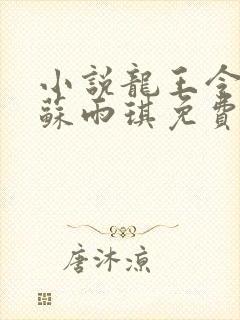 小說龍王令
蘇雨琪免費
唐沐涼